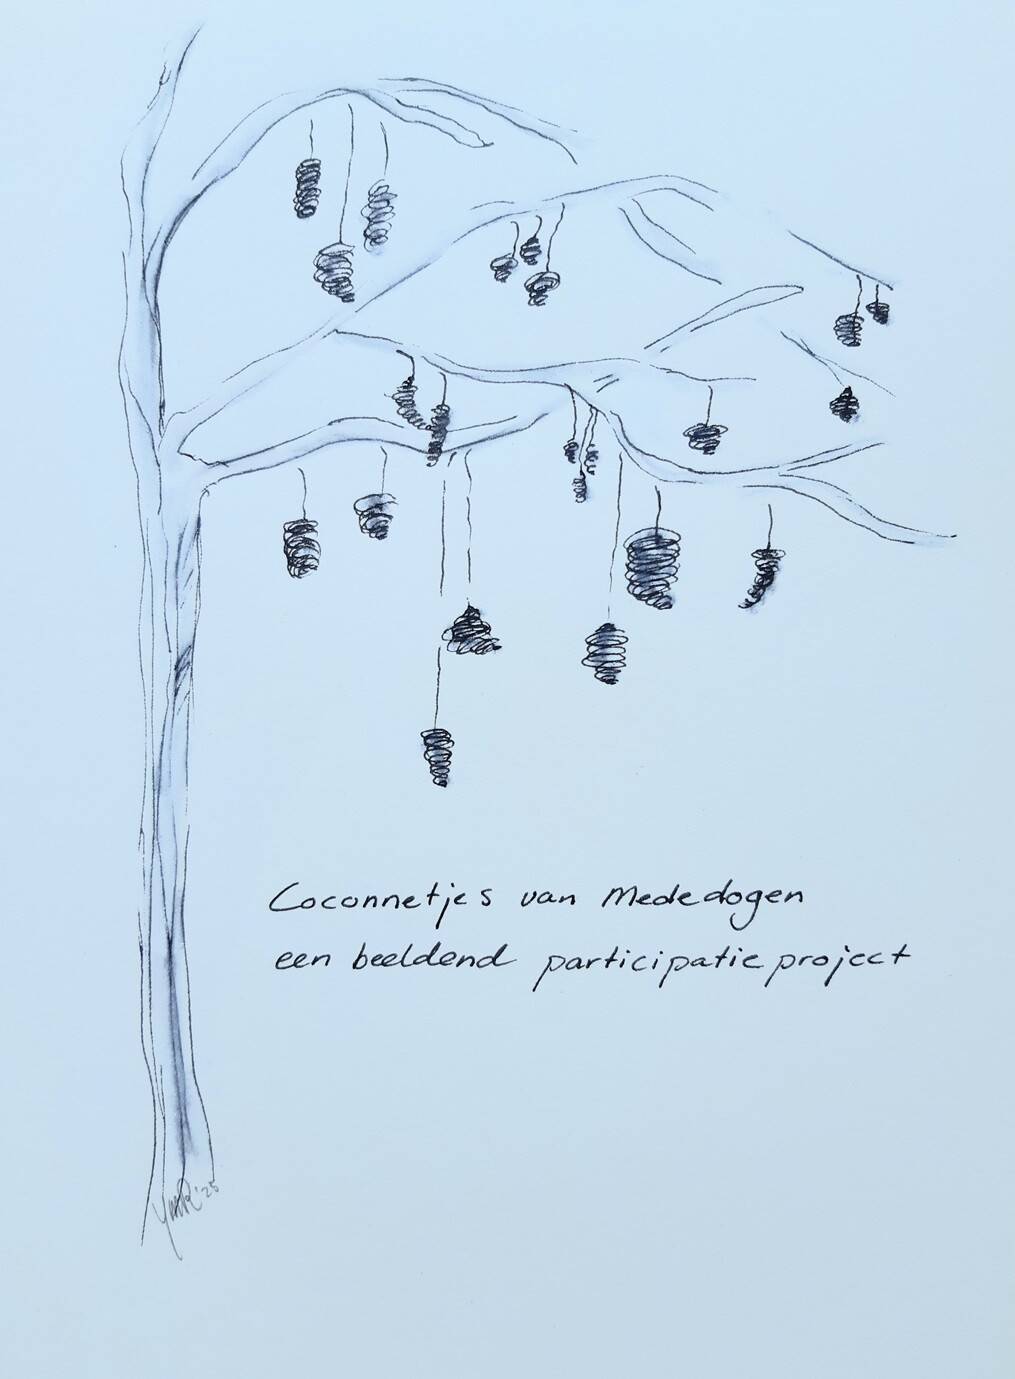 Coconnetjes van Mededogen
een beeldend participatieproject
YMR '25